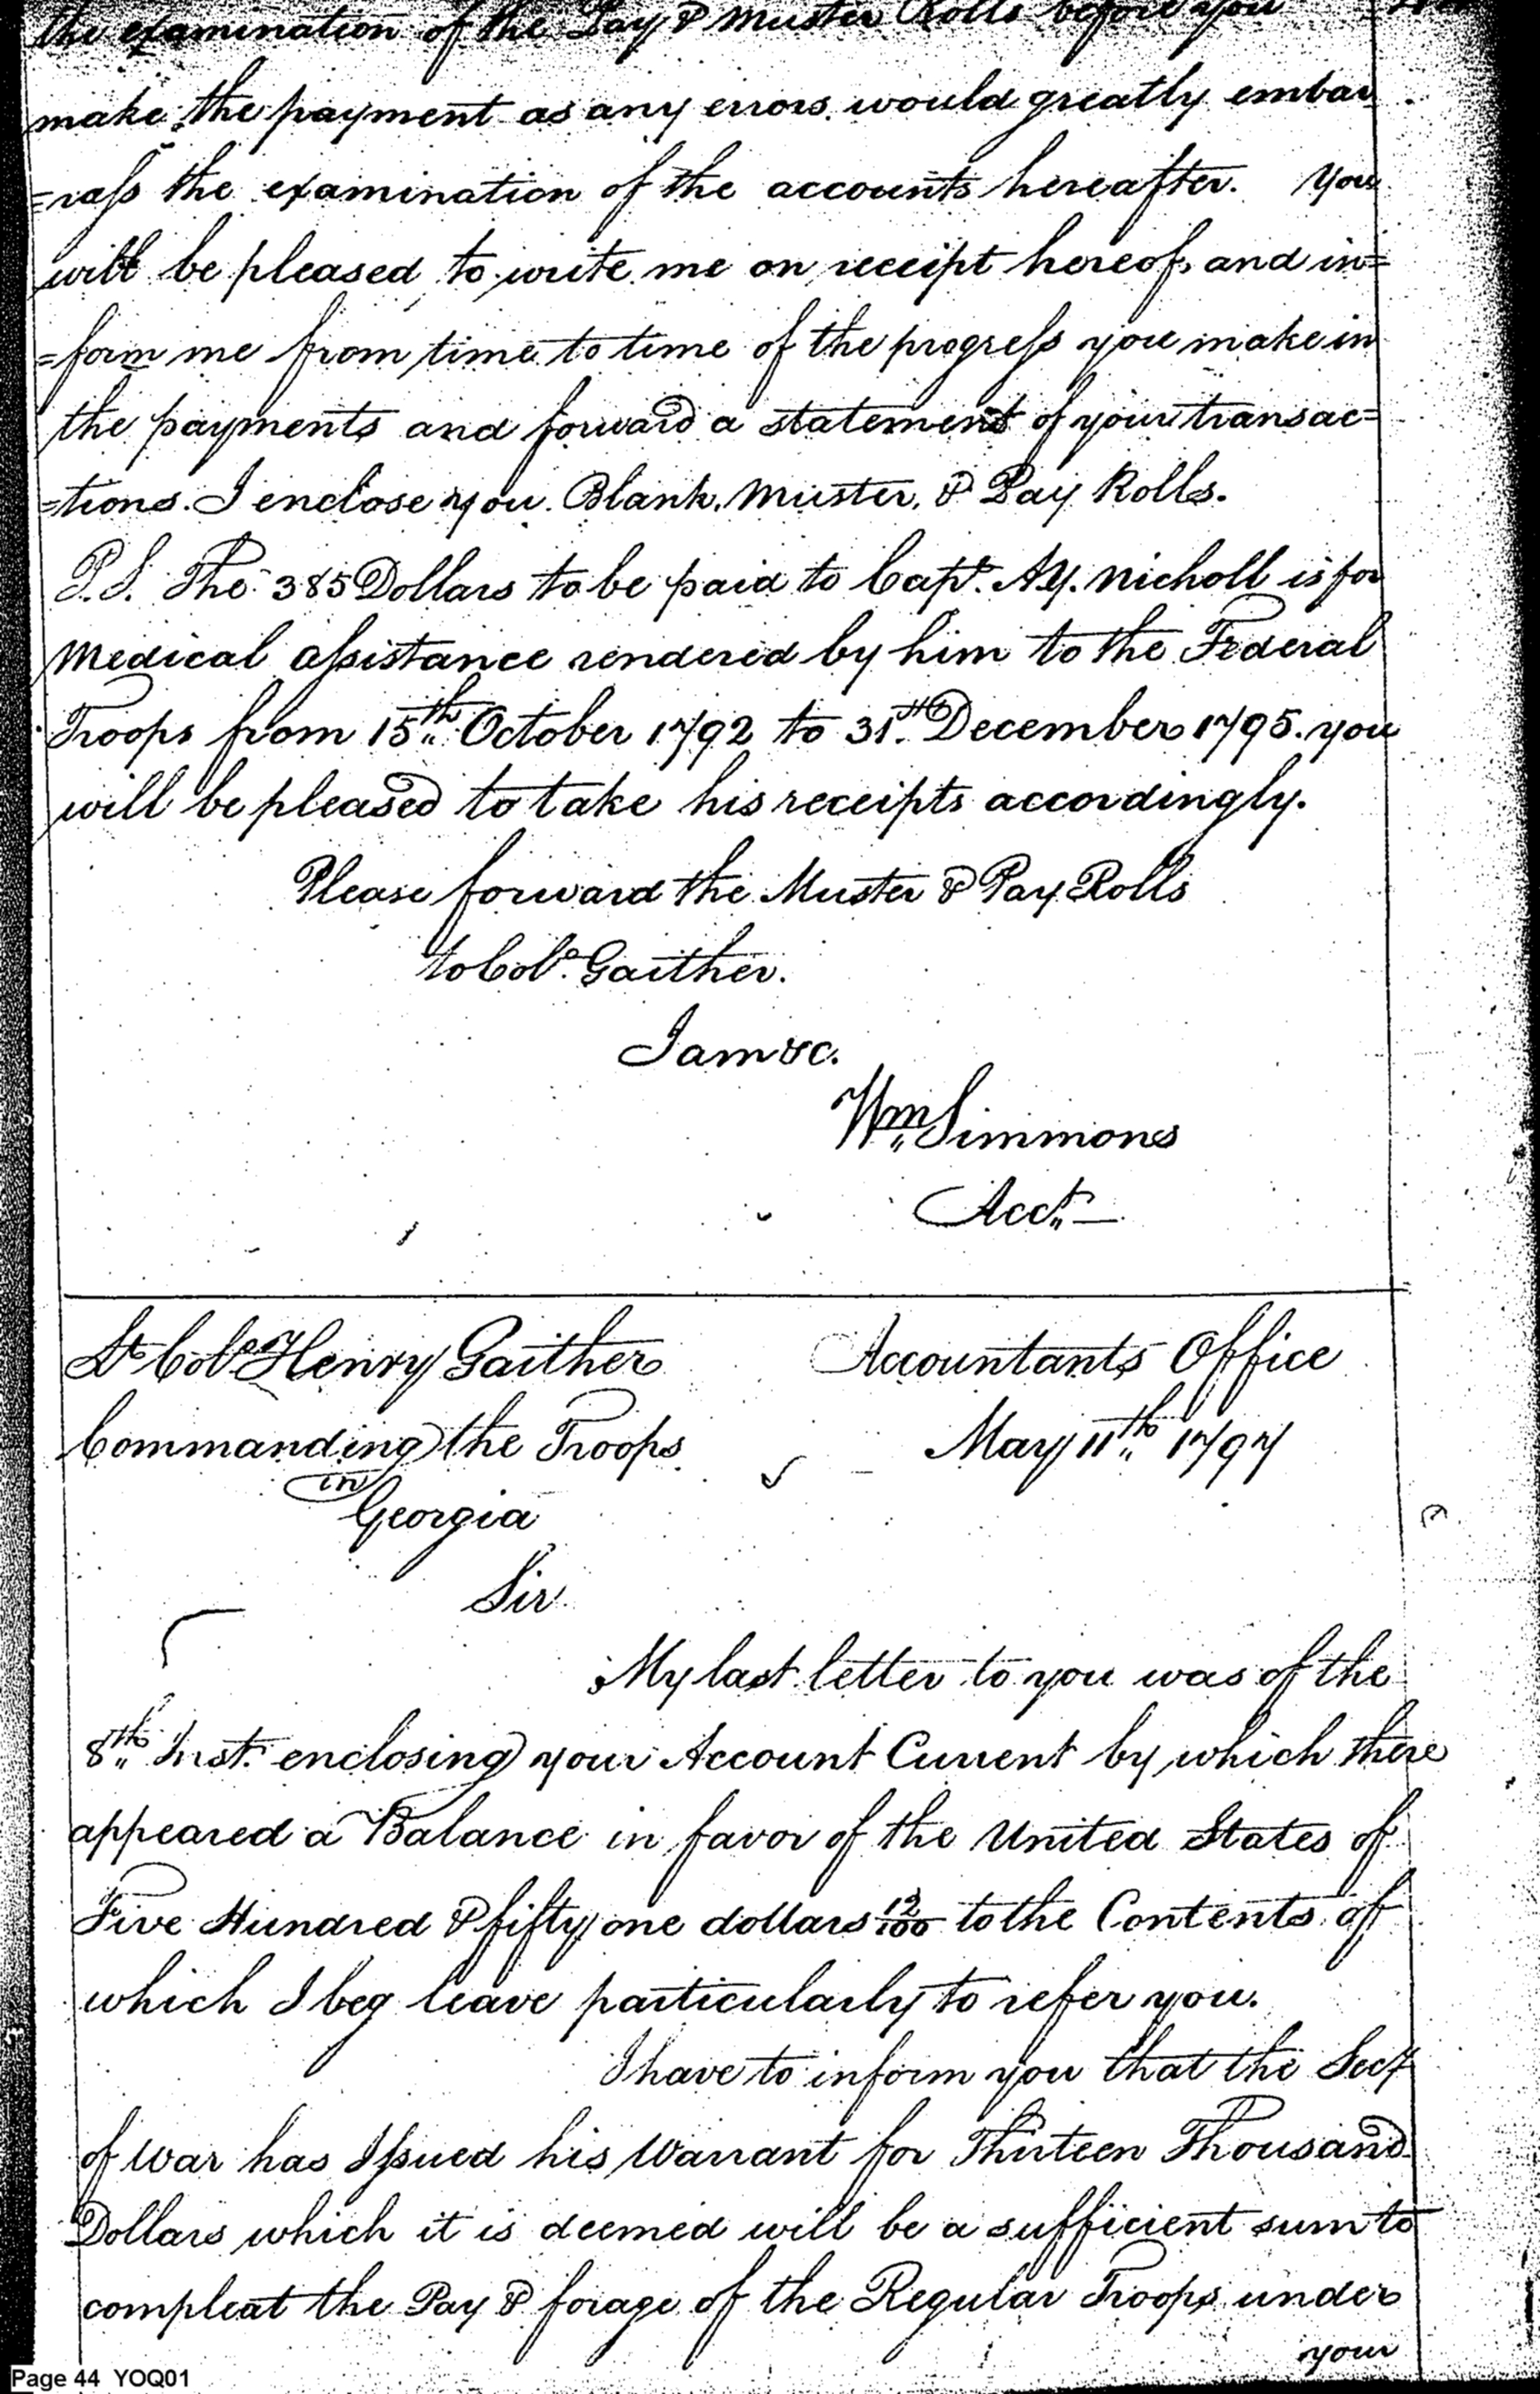 the examination of the Pay & Muster Rolls before you
make the payment as any errors would greatly embar
=rass the examination of the accounts hereafter. You
will be pleased to write me on receipt hereof, and in=
=form me from time to time of the progress you make in
the payments and forward a statement of your transac=
=tions. I enclose you Blank, Muster, & Pay Rolls.
P.S. The 385 Dollars to be paid to Capt. A.Y. Nicholl is for
Medical assistance rendered by him to the Federal
Troops from 15th October 1792 to 31st December 1795. you
will be pleased to take his receipts accordingly.
Please forward the Muster & Pay Rolls
to Colo. Gaither.
I am &c.
Wm Simmons
Acct.
Lt Colo Henry Gaither Accountants Office
Commanding the Troops May 11th 1797
in
Georgia
Sir
My last letter to you was of the
8th Inst. enclosing your Account Current by which there
appeared a Balance in favor of the United States of
Five Hundred & fifty one dollars 12/100 to the Contents of
which I beg leave particularly to refer you.
I have to inform you that the Secy
of War has Issued his Warrant for Thirteen Thousand
Dollars which it is deemed will be a sufficient sum to
compleat the Pay & forage of the Regular Troops under
your
Page 44 YOQ01